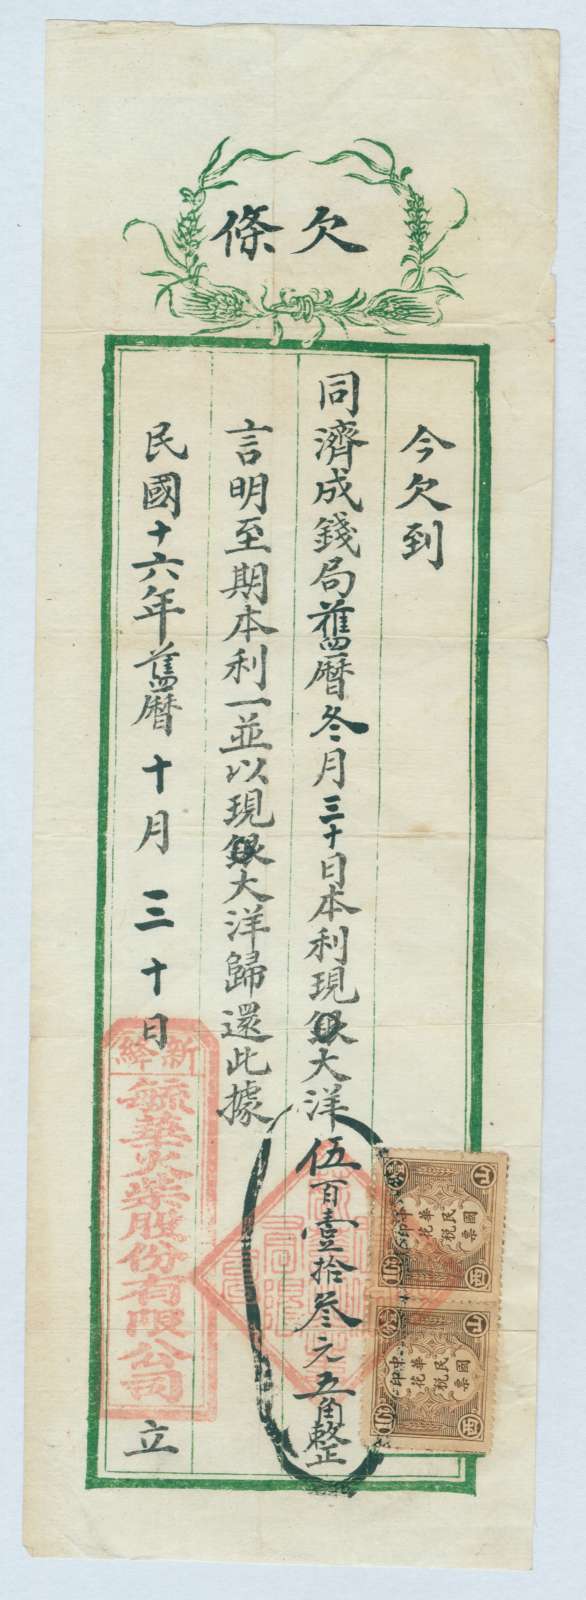 欠條
今欠到
同濟成錢局舊曆冬月三十日本利現銀大洋伍百壹拾叁元五角整
言明至期本利一並以現銀大洋歸還此據
民國十六年舊曆十月三十日
新絳
毓華火柴股份有限公司
立
山西
國民華中
票稅花印
山西
國民華中
票稅花印